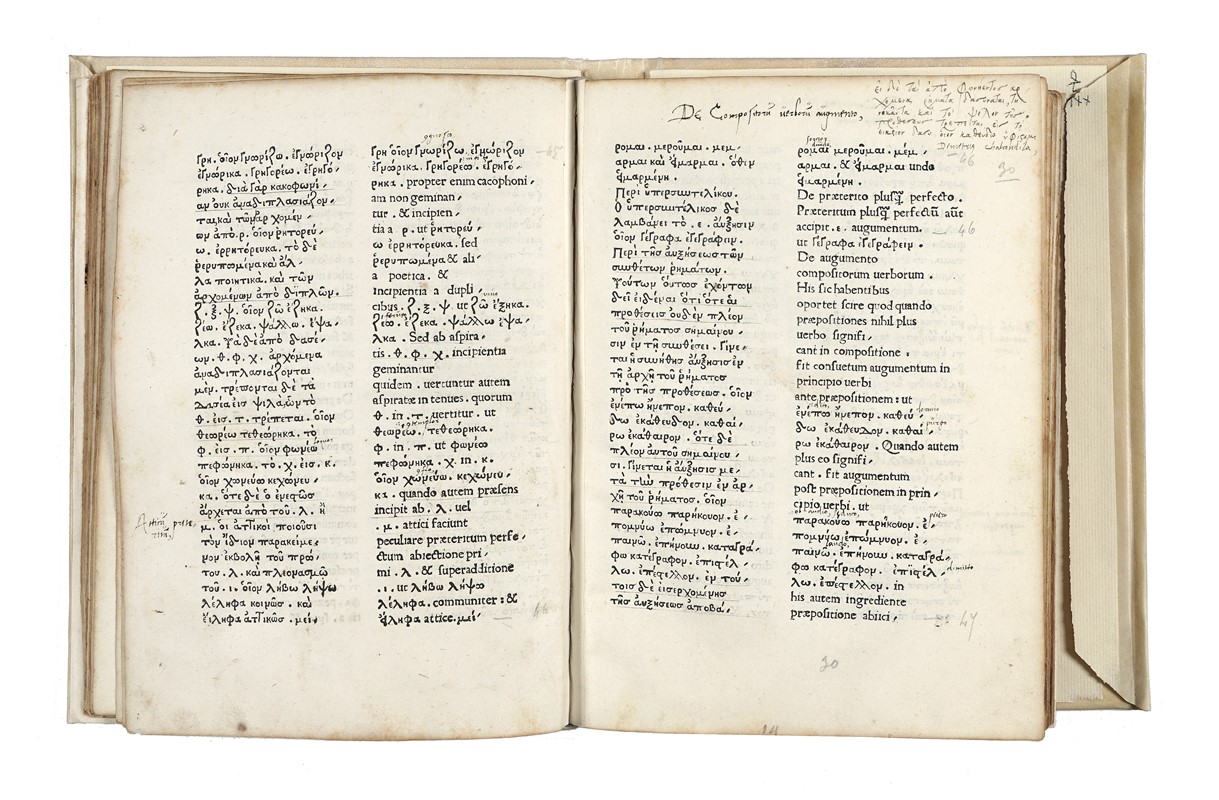 γρη. οἷον γνωρίζω. ἐγνώριζον
ἐγνώρικα. γρηγορέω. ἐγρηγό,
ρηκα. διὰ γὰρ κακοφωνί,
αν οὐκ ἀναδιπλασιάζον,
ται. καὶ τῶν
ων ἀπὸ. ρ. οἷον ῥητορεύ,
ω. ἐρρητόρευκα. τὸ δὲ
ῥερυπωμένα καὶ ἀλ,
λα ποιητικά. καὶ τῶν
ἀρχομένων ἀπὸ διπλῶν.
ζ. ξ. ψ. οἷον ζῶ ἔζηκα.
ζέω. ἔζεκα. ψάλλω. ἔψα,
λκα. τὰ δὲ ἀπὸ δασέ,
ων. θ. φ. χ. ἀρχόμενα
ἀναδιπλασιάζονται
μέν. τρέπονται δὲ τὰ
δασέα εἰς ψιλά. ὧν τὸ
θ. εἰς. τ. τρέπεται. οἷον
θεωρέω τεθεώρηκα. τὸ
φ. εἰς. π. οἷον φωνέω
πεφώνηκα. τὸ. χ. εἰς. κ.
οἷον χωνεύω κεχώνευ,
κα. ὅτε δὲ ὁ ἐνεστὼς
ἄρχεται ἀπὸ τοῦ. λ. ἢ
μ. οἱ ἀττικοὶ ποιοῦσι
τὸν ἴδιον παρακείμε,
νον ἐκβολῇ τοῦ πρώ,
του. λ. καὶ πλεονασμῷ
τοῦ. ι. οἷον λήβω λήψω
λέληφα κοινῶς. καὶ
εἴληφα ἀττικῶς. μεί,
γρη οἷον γνωρίζω. ἐγνώριζον
ἐγνώρικα. γρηγορέω. ἐγρηγό,
ρηκα. propter enim cacophoni,
am non geminan,
tur. & incipien,
tia a ρ. ut ῥητορεύ,
ω ἐρρητόρευκα. sed
ῥερυπωμένα & ali,
a poetica. &
incipientia a dupli,
cibus. ζ. ξ. ψ. ut ζῶ ἔζηκα.
ζέω. ἔζεκα. ψάλλω ἔψα,
λκα. Sed ab aspira,
tis. θ. φ. χ. incipientia
geminantur
quidem. uertuntur autem
aspiratæ in tenues. quorum
θ. in. τ. uertitur. ut
θεωρέω. τεθεώρηκα.
φ. in. π. ut φωνέω
πεφώνηκα. χ. in. κ.
οἷον χωνεύω. κεχώνευ,
κα. quando autem præsens
incipit ab. λ. uel
. μ. attici faciunt
peculiare præteritum perfe,
ctum abiectione pri,
mi. λ. & superadditione
. ι. ut λήβω λήψω
λέληφα. communiter: &
εἴληφα attice. μεί,
De Compositorū uerborū augmento,
ρομαι. μεροῦμαι. μεμ,
αρμαι καὶ εἵμαρμαι. ὅθεν
εἱμαρμένη.
Περὶ ὑπερσυντελίκου.
Ὁ ὑπερσυντέλικος δὲ
λαμβάνει τὸ. ε. αὔξησιν
οἷον γέγραφα ἐγεγράφειν.
Περὶ τῆς αὐξήσεως τῶν
συνθέτων ῥημάτων.
Τούτων οὕτως ἐχόντων
δεῖ εἰδέναι ὅτι ὅτε αἱ
προθέσεις οὐδὲν πλέον
τοῦ ῥήματος σημαίνου,
σιν ἐν τῇ συνθέσει. γίνε,
ται ἡ συνήθης αὔξησις ἐν
τῇ ἀρχῇ τοῦ ῥήματος
πρὸ τῆς προθέσεως. οἷον
ἐνέπω ἤνεπον. καθεύ,
δω ἐκάθευδον. καθαί,
ρω ἐκάθαιρον. ὅτε δὲ
πλέον αὐτοῦ σημαίνου,
σι. γίνεται ἡ αὔξησις με,
τὰ τὴν πρόθεσιν ἐν ἀρ,
χῇ τοῦ ῥήματος. οἷον
παρακούω παρήκουον. ἐ,
πομνύω ἐπώμνυον. ἐ,
παινῶ. ἐπῄνουν. καταγρά,
φω κατέγραφον. ἐπιστέλ,
λω. ἐπέστελλον. ἐν τού,
τοις δὲ εἰσερχομένης
τῆς αὐξήσεως ἀποβάλ,
ρομαι μεροῦμαι. μέμ,
αρμαι. & εἵμαρμαι unde
εἱμαρμένη.
De præterito plusq̃ perfecto.
Præteritum plusq̃ perfectū aūt
accipit. ε. augumentum.
ut γέγραφα ἐγεγράφειν.
De augumento
compositorum uerborum.
His sic habentibus
oportet scire quod quando
præpositiones nihil plus
uerbo signifi,
cant in compositione:
fit consuetum augumentum in
principio uerbi
ante præpositionem: ut
ἐνέπω ἤνεπον. καθεύ,
δω ἐκάθευδον. καθαί,
ρω ἐκάθαιρον. Quando autem
plus eo signifi,
cant. Fit augumentum
post præpositionem in prin,
cipio uerbi. ut
παρακούω παρήκουον. ἐ,
πομνύω ἐπώμνυον. ἐ,
παινῶ. ἐπῄνουν. καταγρά,
φω κατέγραφον. ἐπιστέλ,
λω. ἐπέστελλον. in
his autem ingrediente
præpositione abiici,
46
30
46
47
30